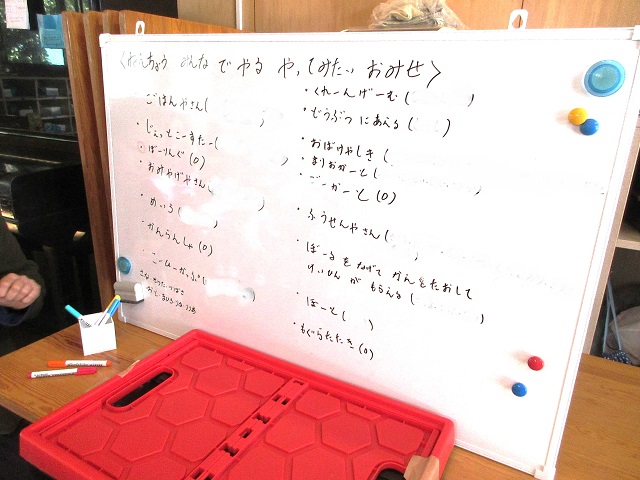 〈ねんちょう みんな で やる や,てみたい おみせ〉
・ごはんやさん(　　)
・じぇっとこーすたー(　　)
・ぼーりんぐ(0)
・おみやげやさん(　　)
・めいろ(　　)
・かんらんしゃ(0)
・こーひーかっぷ(　　)
・くれーんげーむ(　　)
・どうぶつ にあえる(　　)
・おばけやしき(　　)
・まりおかーと(　　)
・ごーかーと(0)
・ふうせんやさん(　　)
・ぼーるをなげて かんをたおして
けいひん が もらえる(　　)
・ぼーと(　　)
・もぐらたたき(0)